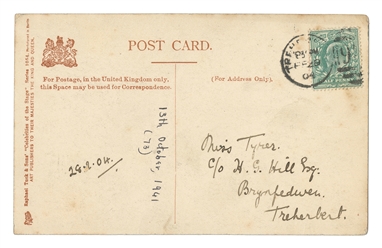 POST CARD.
For Postage, in the United Kingdom only,
this Space may be used for Correspondence.
(For Address Only).
Raphael Tuck & Sons' "Celebrities of the Stage" Series
ART PUBLISHERS TO THEIR MAJESTIES THE KING AND QUEEN.
28.2.04.
13th October, 1941
(73)
Miss Tyrer.
C/o H. G. Hill Esq.
Brynfedwen.
Treherbert.
04